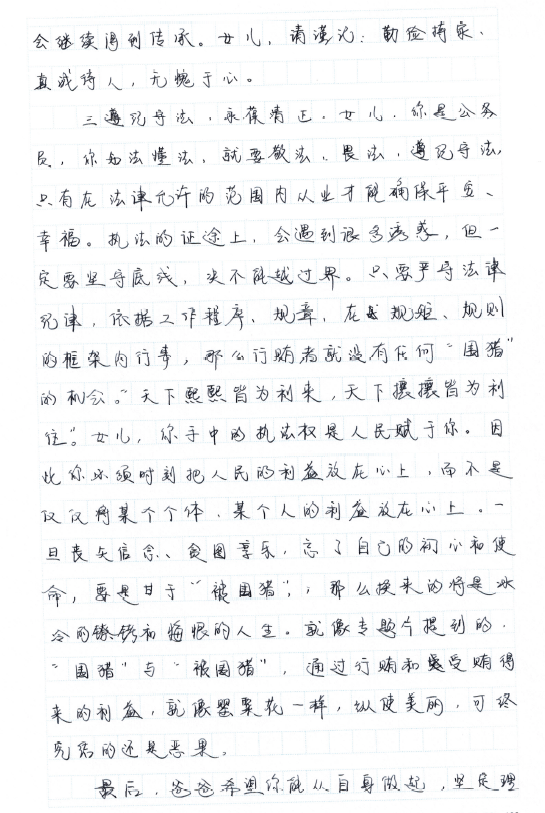 会继续得到传承。女儿，请谨记：勤俭持家、
真诚待人，无愧于心。
三遵纪守法，永葆清正。女儿，你是公务
员，你知法懂法，就要敬法、畏法，遵纪守法，
只有在法律允许的范围内从业才能确保平安、
幸福。执法的征途上，会遇到很多诱惑，但一
定要坚守底线，决不能越过界。只要严守法律
纪律，依据工作程序、规章，在规矩、规则
的框架内行事，那么行贿者就没有任何“围猎”
的机会。“天下熙熙皆为利来，天下攘攘皆为利
往”。女儿，你手中的执法权是人民赋于你。因
此你必须时刻把人民的利益放在心上，而不是
仅仅将某个个体、某个人的利益放在心上。一
旦丧失信念、贪图享乐，忘了自己的初心和使
命，要是甘于“被围猎”，那么换来的将是冰
冷的镣铐和悔恨的人生。就像专题片提到的，
“围猎”与“被围猎”，通过行贿和受贿得
来的利益，就像罂粟花一样，纵使美丽，可终
究结的还是恶果。
最后，爸爸希望你能从自身做起，坚定理